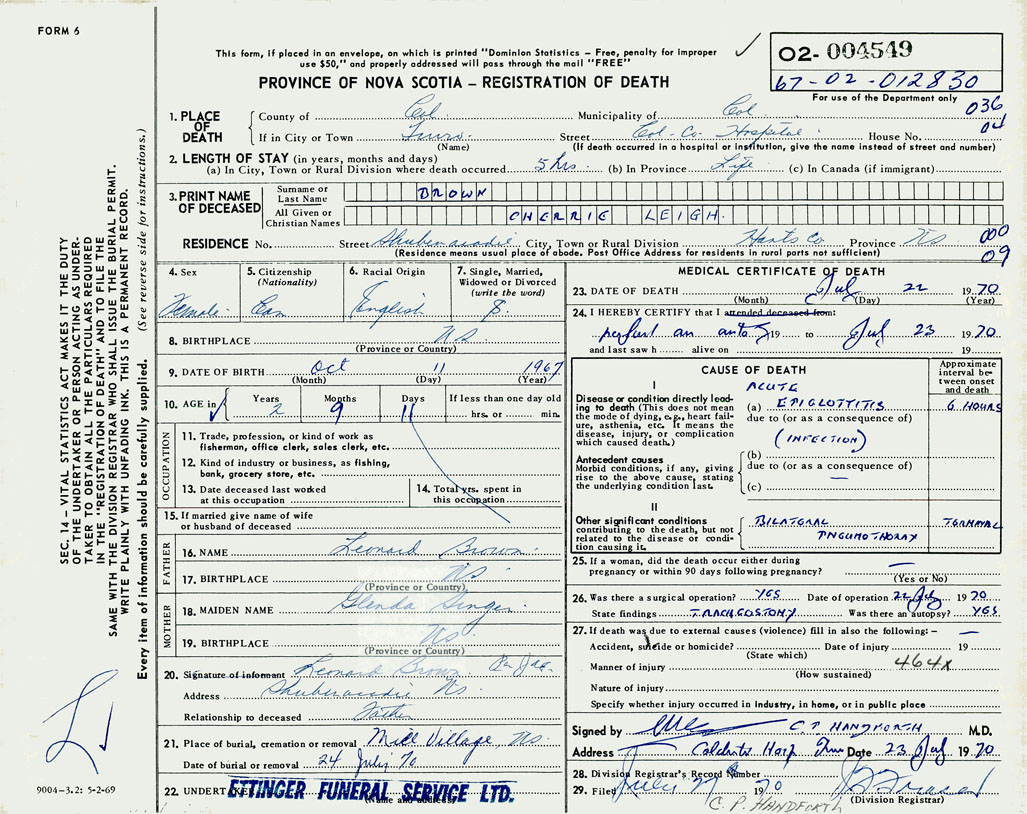 FORM 6
This form, if placed in an envelope, on which is printed "Dominion Statistics – Free, penalty for improper
use $50," and properly addressed will pass through the mail "FREE"
PROVINCE OF NOVA SCOTIA – REGISTRATION OF DEATH
02- 004549
67-02-012830
For use of the Department only
036
04
1. PLACE OF DEATH
County of Col. Municipality of Col
If in City or Town Truro Street Col-Co. Hospital House No.
(Name) (If death occurred in a hospital or institution, give the name instead of street and number)
2. LENGTH OF STAY (in years, months and days)
(a) In City, Town or Rural Division where death occurred 5 hrs. (b) In Province Life (c) In Canada (if immigrant)
3. PRINT NAME OF DECEASED
Surname or Last Name BROWN
All Given or Christian Names CHERRIE LEIGH.
RESIDENCE No. Street Shubenacadie City, Town or Rural Division Hants Co. Province NS
000
09
(Residence means usual place of abode. Post Office Address for residents in rural parts not sufficient)
4. Sex Female
5. Citizenship (Nationality) Can
6. Racial Origin English
7. Single, Married, Widowed or Divorced (write the word) S.
8. BIRTHPLACE NS
(Province or Country)
9. DATE OF BIRTH Oct 11 1967
(Month) (Day) (Year)
10. AGE in Years 2 Months 9 Days 11 If less than one day old
hrs. or min.
OCCUPATION
11. Trade, profession, or kind of work as
fisherman, office clerk, sales clerk, etc.
12. Kind of industry or business, as fishing,
bank, grocery store, etc.
13. Date deceased last worked
at this occupation
14. Total yrs. spent in
this occupation
15. If married give name of wife
or husband of deceased
FATHER
16. NAME Leonard Brown
17. BIRTHPLACE NS
(Province or Country)
MOTHER
18. MAIDEN NAME Glenda Singer
19. BIRTHPLACE NS
(Province or Country)
20. Signature of informant Leonard Brown
Address Shubenacadie NS.
Relationship to deceased Father
21. Place of burial, cremation or removal Mill Village, NS.
Date of burial or removal 24 July 70
22. UNDERTAKER ETTINGER FUNERAL SERVICE LTD.
(Name and address)
MEDICAL CERTIFICATE OF DEATH
23. DATE OF DEATH Jul 22 1970
(Month) (Day) (Year)
24. I HEREBY CERTIFY that I attended deceased from:
perform an autopsy 19 to Jul 23 1970
and last saw h alive on 19
CAUSE OF DEATH
Approximate interval between onset and death
I
Disease or condition directly leading to death (This does not mean the mode of dying, e.g., heart failure, asthenia, etc. It means the disease, injury, or complication which caused death.)
ACUTE
(a) EPIGLOTTITIS 6 HOURS
due to (or as a consequence of)
(INFECTION)
Antecedent causes
Morbid conditions, if any, giving rise to the above cause, stating the underlying condition last.
(b) —
due to (or as a consequence of)
(c)
II
Other significant conditions contributing to the death, but not related to the disease or condition causing it.
BILATERAL TERMINAL
PNEUMOTHORAX
25. If a woman, did the death occur either during
pregnancy or within 90 days following pregnancy? —
(Yes or No)
26. Was there a surgical operation? YES Date of operation 22 July 1970
State findings TRACHEOSTOMY Was there an autopsy? YES
27. If death was due to external causes (violence) fill in also the following:– —
Accident, suicide or homicide? Date of injury 19
(State which)
Manner of injury 464X
(How sustained)
Nature of injury
Specify whether injury occurred in industry, in home, or in public place
Signed by C P HANDFORTH M.D.
Address Colchester Hosp Truro Date 23 Jul 1970
28. Division Registrar's Record Number
29. Filed July 1970
(Division Registrar)
C. P. HANDFORTH
SEC. 14 – VITAL STATISTICS ACT MAKES IT THE DUTY
OF THE UNDERTAKER OR PERSON ACTING AS UNDER-
TAKER TO OBTAIN ALL THE PARTICULARS REQUIRED
IN THE "REGISTRATION OF DEATH" AND TO FILE THE
SAME WITH THE DIVISION REGISTRAR WHO SHALL ISSUE THE BURIAL PERMIT.
WRITE PLAINLY WITH UNFADING INK. THIS IS A PERMANENT RECORD.
Every item of information should be carefully supplied. (See reverse side for instructions.)
9004–3.2: 5-2-69